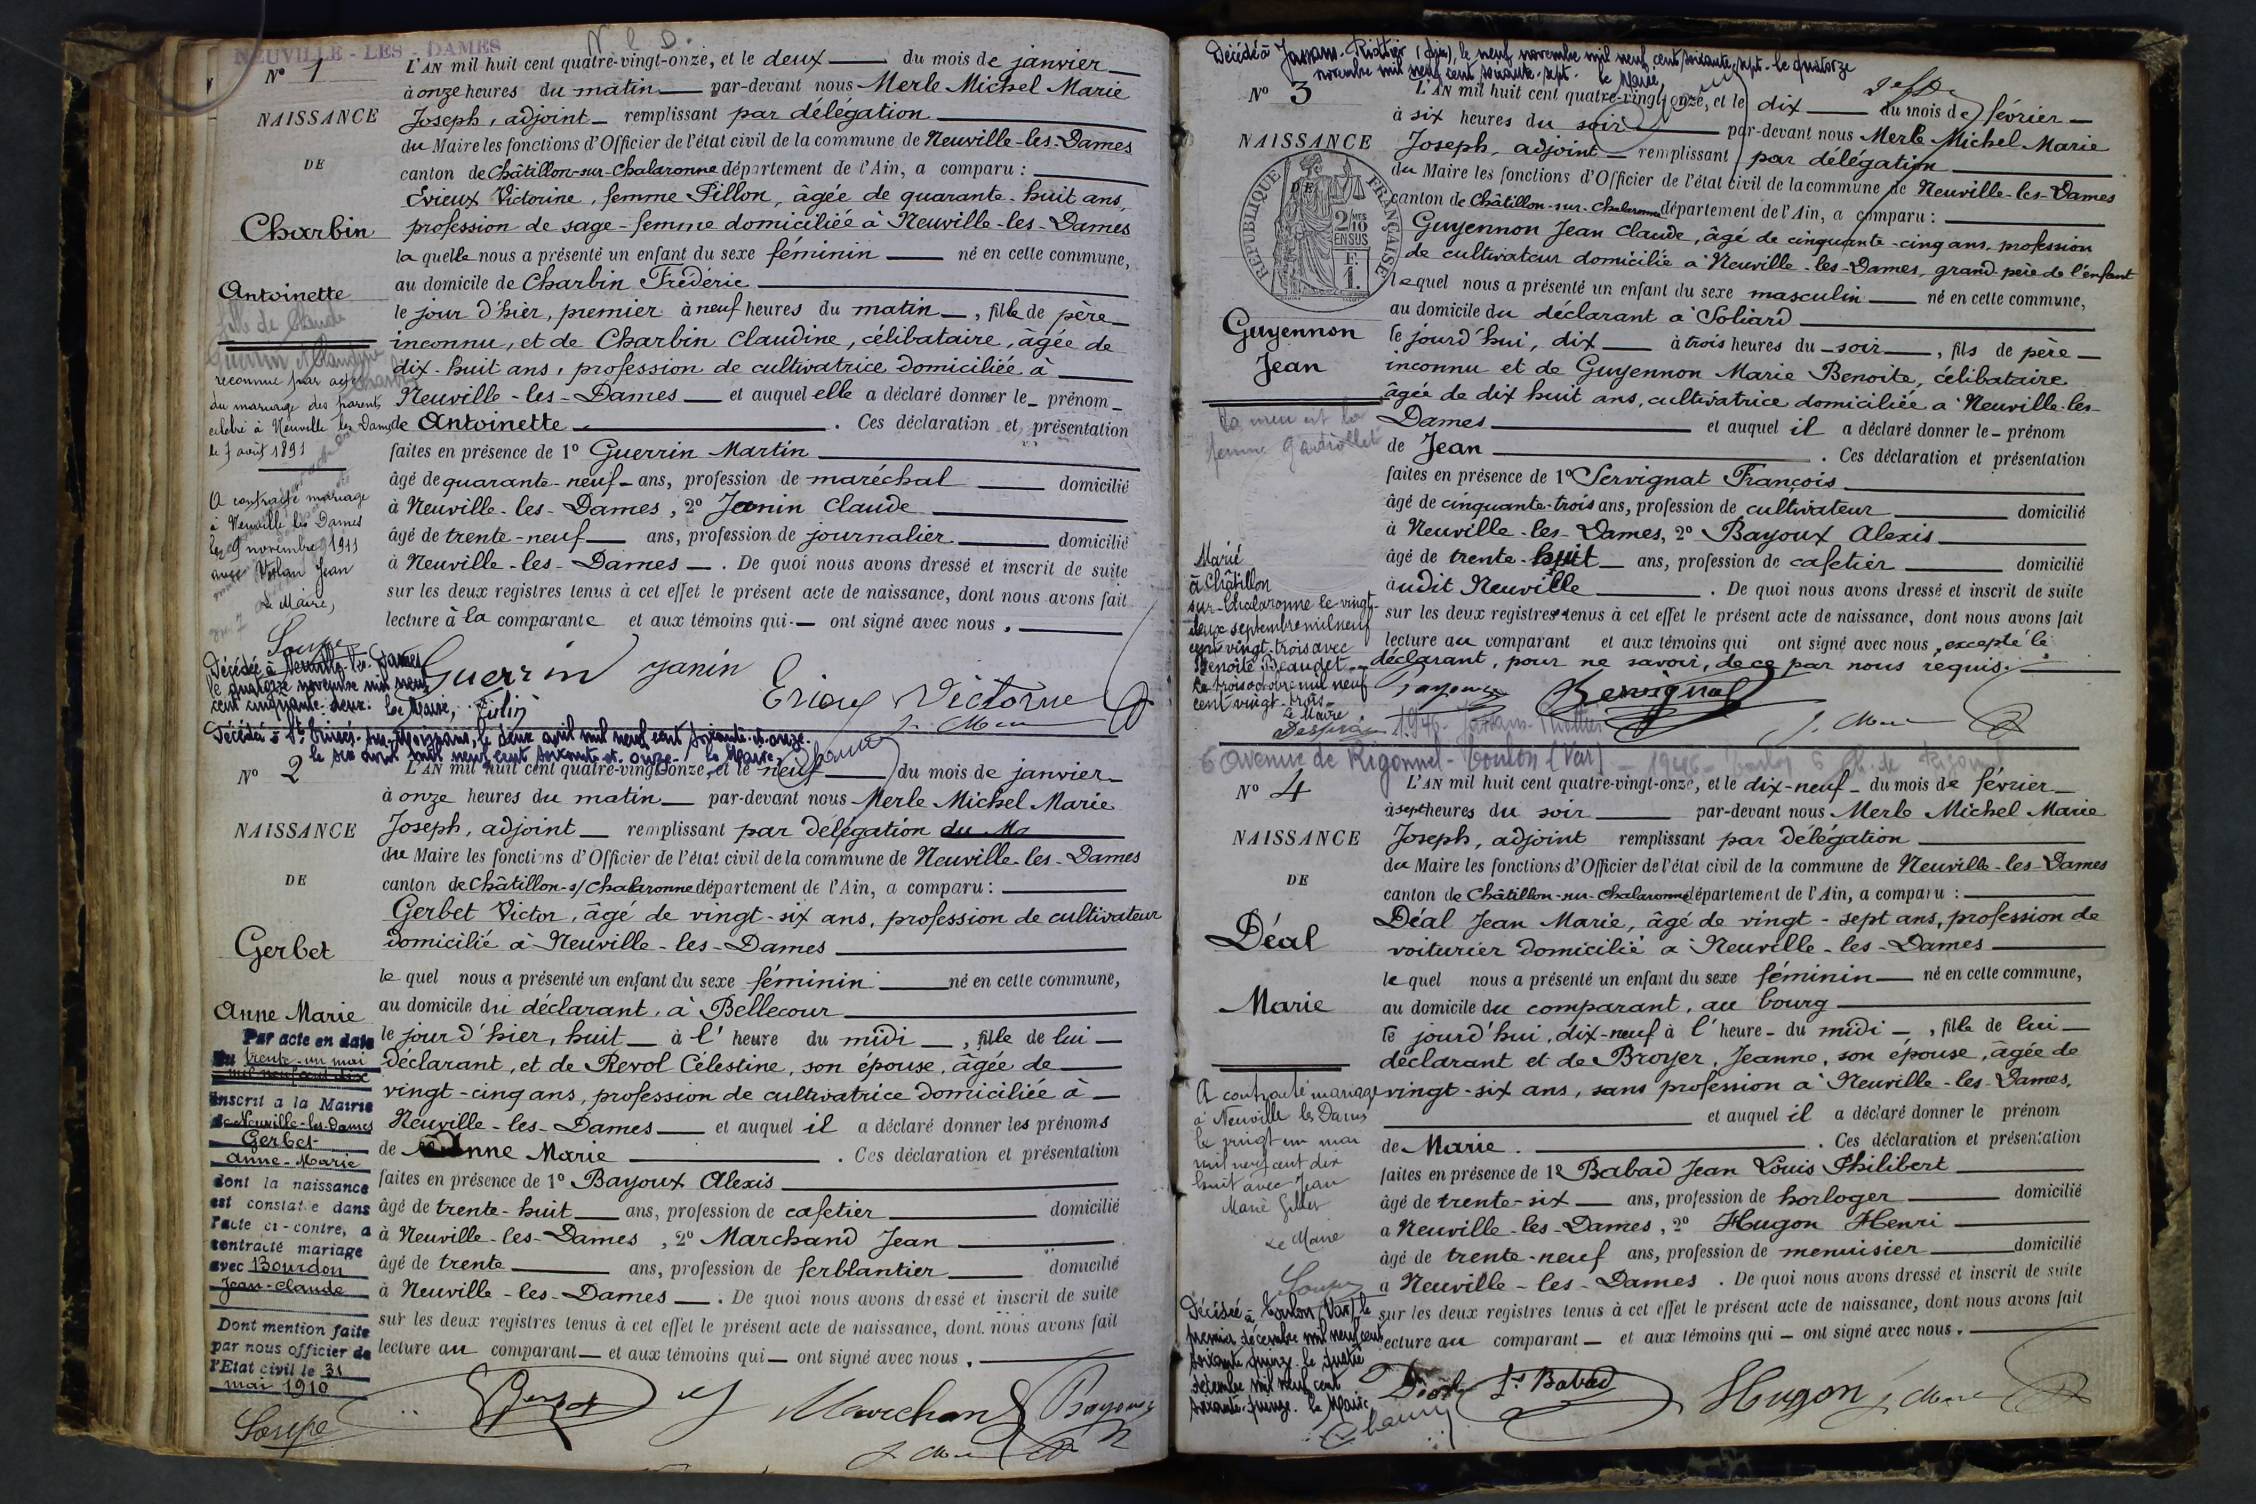 NEUVILLE-LES-DAMES
N. L. D.
N° 1
NAISSANCE
DE
Charbin
Antoinette
fille de Claude
Guerrin et Claudine
Charbin
reconnue par acte
du mariage des parents
célébré à Neuville les Dames
le 7 août 1891
A contracté mariage
à Neuville les Dames
le 9 novembre 1911
avec Jean
Le Maire,
Soupe
Décédée à Neuville-les-Dames
le quatorze novembre mil neuf
cent cinquante-deux. Le Maire,
L'AN mil huit cent quatre-vingt-onze, et le deux du mois de janvier
à onze heures du matin par-devant nous Merle Michel Marie
Joseph, adjoint remplissant par délégation
du Maire les fonctions d'Officier de l'état civil de la commune de Neuville-les-Dames
canton de Châtillon-sur-Chalaronne département de l'Ain, a comparu :
Erieux Victorine, femme Pillon, âgée de quarante-huit ans,
profession de sage-femme domiciliée à Neuville-les-Dames
la quelle nous a présenté un enfant du sexe féminin né en cette commune,
au domicile de Charbin Frédéric
le jour d'hier, premier à neuf heures du matin, fille de père
inconnu, et de Charbin Claudine, célibataire, âgée de
dix-huit ans, profession de cultivatrice domiciliée à
Neuville-les-Dames et auquel elle a déclaré donner le prénom
de Antoinette. Ces déclaration et présentation
faites en présence de 1° Guerrin Martin
âgé de quarante-neuf ans, profession de maréchal domicilié
à Neuville-les-Dames, 2° Janin Claude
âgé de trente-neuf ans, profession de journalier domicilié
à Neuville-les-Dames. De quoi nous avons dressé et inscrit de suite
sur les deux registres tenus à cet effet le présent acte de naissance, dont nous avons fait
lecture à la comparante et aux témoins qui ont signé avec nous.
Guerrin Janin
Erieux Victorine
Décédée à St Trivier-sur-Moignans, le deux avril mil neuf cent soixante-et-onze.
le six avril mil neuf cent soixante-et-onze. Le Maire,
N° 2
NAISSANCE
DE
Gerbet
Anne Marie
Par acte en date
du trente-un mai
mil neuf cent dix
inscrit à la Mairie
de Neuville-les-Dames
Gerbet
Anne-Marie
dont la naissance
est constatée dans
l'acte ci-contre, a
contracté mariage
avec Bourdon
Jean-Claude
Dont mention faite
par nous officier de
l'Etat civil le 31
mai 1910
Soupe
L'AN mil huit cent quatre-vingt-onze, et le neuf du mois de janvier
à onze heures du matin par-devant nous Merle Michel Marie
Joseph, adjoint remplissant par délégation du Ma
du Maire les fonctions d'Officier de l'état civil de la commune de Neuville-les-Dames
canton de Châtillon-s/Chalaronne département de l'Ain, a comparu :
Gerbet Victor, âgé de vingt-six ans, profession de cultivateur
domicilié à Neuville-les-Dames
le quel nous a présenté un enfant du sexe féminin né en cette commune,
au domicile du déclarant, à Bellecour
le jour d'hier, huit à l'heure du midi, fille de lui
déclarant, et de Revol Célestine, son épouse, âgée de
vingt-cinq ans, profession de cultivatrice domiciliée à
Neuville-les-Dames et auquel il a déclaré donner les prénoms
de Anne Marie. Ces déclaration et présentation
faites en présence de 1° Bayoux Alexis
âgé de trente-huit ans, profession de cafetier domicilié
à Neuville-les-Dames, 2° Marchand Jean
âgé de trente ans, profession de ferblantier domicilié
à Neuville-les-Dames. De quoi nous avons dressé et inscrit de suite
sur les deux registres tenus à cet effet le présent acte de naissance, dont nous avons fait
lecture au comparant et aux témoins qui ont signé avec nous.
Gerbet Marchand Bayoux
Décédé à Jassans-Riottier (Ain), le neuf novembre mil neuf cent soixante-sept. le quatorze
novembre mil neuf cent soixante-sept. le Maire,
N° 3
NAISSANCE
DE
RÉPUBLIQUE FRANÇAISE
2/10
EN SUS
1F.
Guyennon
Jean
la mère est la
femme
Marié
à Châtillon
sur-Chalaronne le vingt-
deux septembre mil neuf
cent vingt-trois avec
Benoîte Beaudet
Le trois octobre mil neuf
cent vingt-trois
Le Maire
L'AN mil huit cent quatre-vingt-onze, et le dix du mois de février
à six heures du soir par-devant nous Merle Michel Marie
Joseph, adjoint remplissant par délégation
du Maire les fonctions d'Officier de l'état civil de la commune de Neuville-les-Dames
canton de Châtillon-sur-Chalaronne département de l'Ain, a comparu :
Guyennon Jean Claude, âgé de cinquante-cinq ans, profession
de cultivateur domicilié à Neuville-les-Dames, grand-père de l'enfant
lequel nous a présenté un enfant du sexe masculin né en cette commune,
au domicile du déclarant à Soliard
le jourd'hui, dix à trois heures du soir, fils de père
inconnu et de Guyennon Marie Benoite, célibataire
âgée de dix huit ans, cultivatrice domiciliée à Neuville-les-
Dames et auquel il a déclaré donner le prénom
de Jean. Ces déclaration et présentation
faites en présence de 1° Servignat François
âgé de cinquante-trois ans, profession de cultivateur domicilié
à Neuville-les-Dames, 2° Bayoux Alexis
âgé de trente-huit ans, profession de cafetier domicilié
audit Neuville. De quoi nous avons dressé et inscrit de suite
sur les deux registres tenus à cet effet le présent acte de naissance, dont nous avons fait
lecture au comparant et aux témoins qui ont signé avec nous, excepté le
déclarant, pour ne savoir, de ce par nous requis.
Bayoux Servignat
1946. Jassans-Riottier
6 Avenue de Rigonnel - Toulon (Var)
N° 4
NAISSANCE
DE
Déal
Marie
A contracté mariage
à Neuville les Dames
le vingt un mai
mil neuf cent dix
huit avec Jean
Marie
Le Maire
Soupe
Décédée à Toulon (Var) le
premier décembre mil neuf cent
soixante-quinze. le quatre
décembre mil neuf cent
soixante-quinze. le Maire
L'AN mil huit cent quatre-vingt-onze, et le dix-neuf du mois de février
à sept heures du soir par-devant nous Merle Michel Marie
Joseph, adjoint remplissant par délégation
du Maire les fonctions d'Officier de l'état civil de la commune de Neuville-les-Dames
canton de Châtillon-sur-Chalaronne département de l'Ain, a comparu :
Déal Jean Marie, âgé de vingt-sept ans, profession de
voiturier domicilié à Neuville-les-Dames
le quel nous a présenté un enfant du sexe féminin né en cette commune,
au domicile du comparant, au bourg
le jourd'hui, dix-neuf à l'heure du midi, fille de lui
déclarant et de Broyer, Jeanne, son épouse, âgée de
vingt-six ans, sans profession à Neuville-les-Dames,
et auquel il a déclaré donner le prénom
de Marie. Ces déclaration et présentation
faites en présence de 1° Babad Jean Louis Philibert
âgé de trente-six ans, profession de horloger domicilié
a Neuville-les-Dames, 2° Hugon Henri
âgé de trente-neuf ans, profession de menuisier domicilié
a Neuville-les-Dames. De quoi nous avons dressé et inscrit de suite
sur les deux registres tenus à cet effet le présent acte de naissance, dont nous avons fait
lecture au comparant et aux témoins qui ont signé avec nous.
Déal Babad Hugon